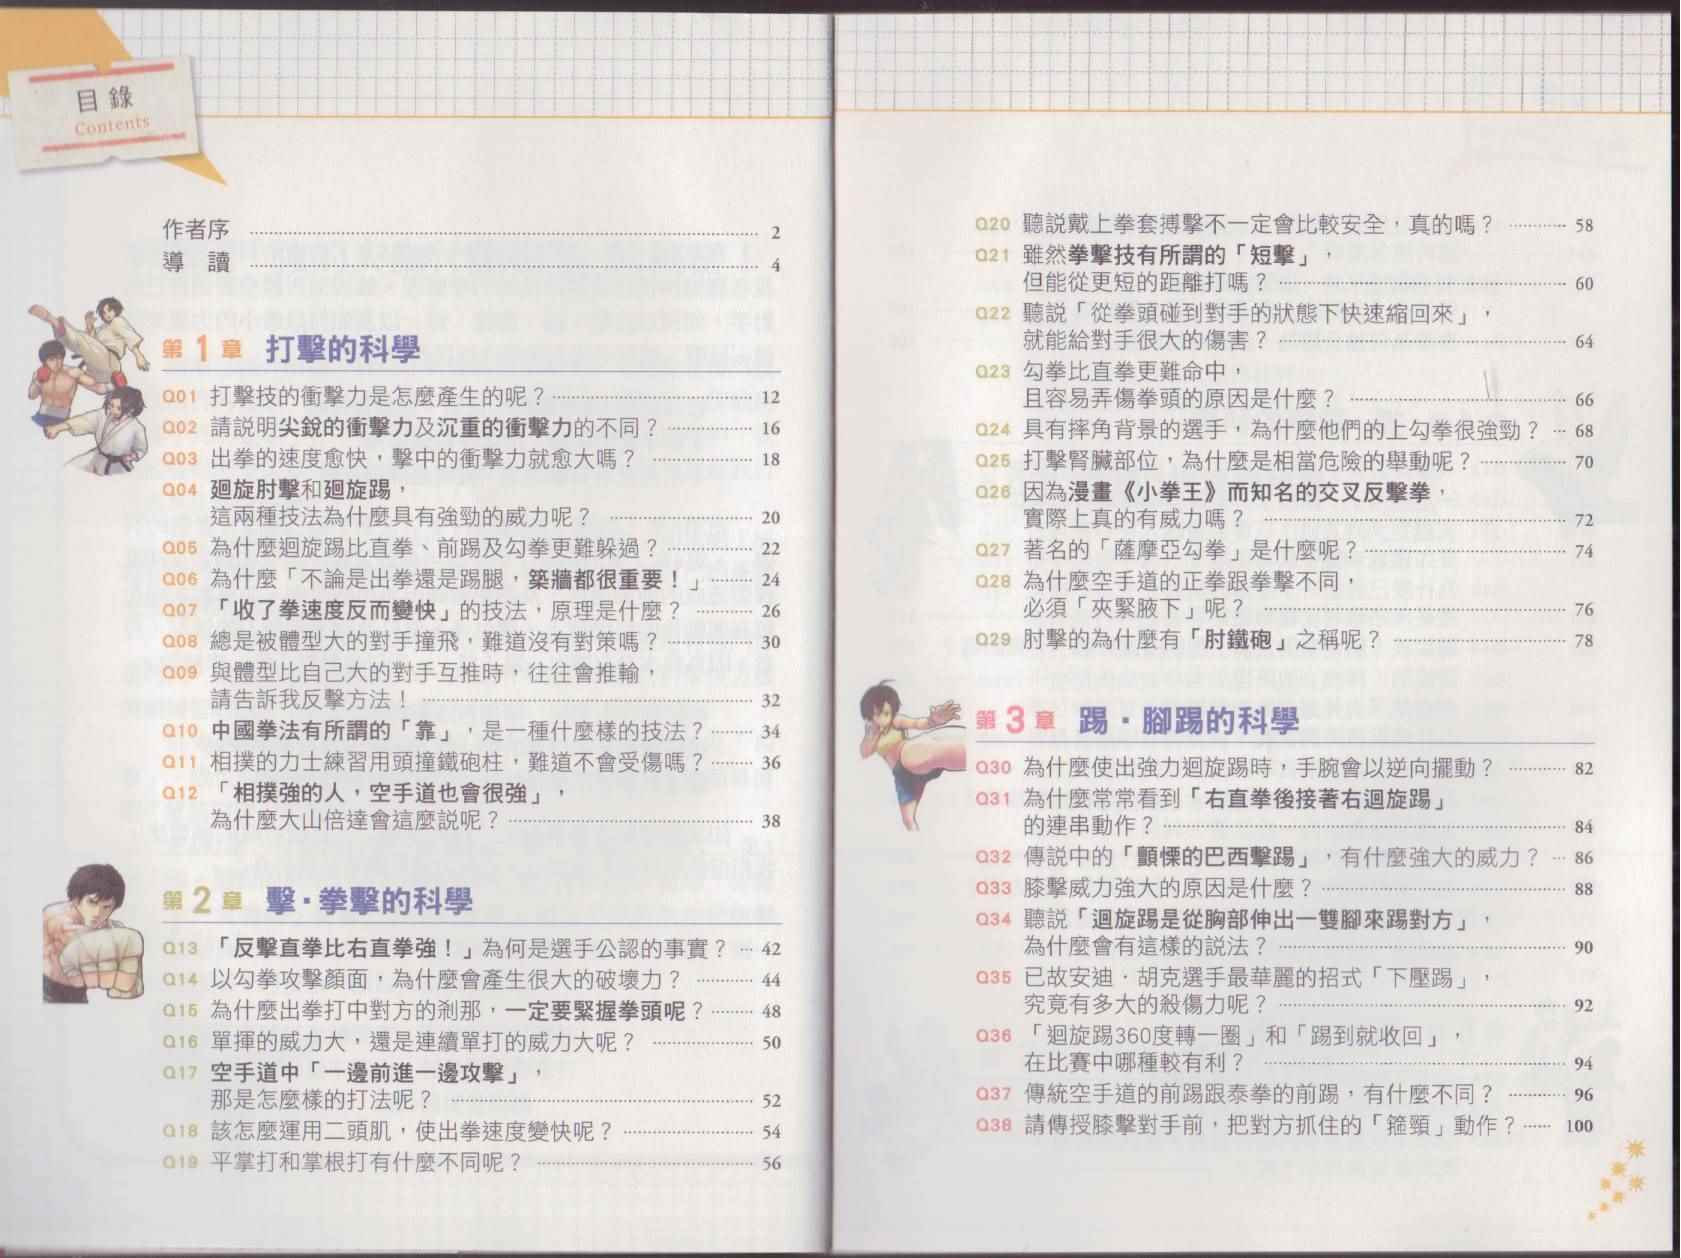 目錄
Contents
作者序 2
導 讀 4
第1章 打擊的科學
Q01 打擊技的衝擊力是怎麼產生的呢？ 12
Q02 請説明尖銳的衝擊力及沉重的衝擊力的不同？ 16
Q03 出拳的速度愈快，擊中的衝擊力就愈大嗎？ 18
Q04 廻旋肘擊和廻旋踢，
這兩種技法為什麼具有強勁的威力呢？ 20
Q05 為什麼迴旋踢比直拳、前踢及勾拳更難躲過？ 22
Q06 為什麼「不論是出拳還是踢腿，築牆都很重要！」 24
Q07 「收了拳速度反而變快」的技法，原理是什麼？ 26
Q08 總是被體型大的對手撞飛，難道沒有對策嗎？ 30
Q09 與體型比自己大的對手互推時，往往會推輸，
請告訴我反擊方法！ 32
Q10 中國拳法有所謂的「靠」，是一種什麼樣的技法？ 34
Q11 相撲的力士練習用頭撞鐵砲柱，難道不會受傷嗎？ 36
Q12 「相撲強的人，空手道也會很強」，
為什麼大山倍達會這麼説呢？ 38
第2章 擊・拳擊的科學
Q13 「反擊直拳比右直拳強！」為何是選手公認的事實？ 42
Q14 以勾拳攻擊顏面，為什麼會產生很大的破壞力？ 44
Q15 為什麼出拳打中對方的剎那，一定要緊握拳頭呢？ 48
Q16 單揮的威力大，還是連續單打的威力大呢？ 50
Q17 空手道中「一邊前進一邊攻擊」，
那是怎麼樣的打法呢？ 52
Q18 該怎麼運用二頭肌，使出拳速度變快呢？ 54
Q19 平掌打和掌根打有什麼不同呢？ 56
Q20 聽説戴上拳套搏擊不一定會比較安全，真的嗎？ 58
Q21 雖然拳擊技有所謂的「短擊」，
但能從更短的距離打嗎？ 60
Q22 聽説「從拳頭碰到對手的狀態下快速縮回來」，
就能給對手很大的傷害？ 64
Q23 勾拳比直拳更難命中，
且容易弄傷拳頭的原因是什麼？ 66
Q24 具有摔角背景的選手，為什麼他們的上勾拳很強勁？ 68
Q25 打擊腎臟部位，為什麼是相當危險的舉動呢？ 70
Q26 因為漫畫《小拳王》而知名的交叉反擊拳，
實際上真的有威力嗎？ 72
Q27 著名的「薩摩亞勾拳」是什麼呢？ 74
Q28 為什麼空手道的正拳跟拳擊不同，
必須「夾緊腋下」呢？ 76
Q29 肘擊的為什麼有「肘鐵砲」之稱呢？ 78
第3章 踢・腳踢的科學
Q30 為什麼使出強力迴旋踢時，手腕會以逆向擺動？ 82
Q31 為什麼常常看到「右直拳後接著右迴旋踢」
的連串動作？ 84
Q32 傳説中的「顫慄的巴西擊踢」，有什麼強大的威力？ 86
Q33 膝擊威力強大的原因是什麼？ 88
Q34 聽説「迴旋踢是從胸部伸出一雙腳來踢對方」，
為什麼會有這樣的説法？ 90
Q35 已故安迪・胡克選手最華麗的招式「下壓踢」，
究竟有多大的殺傷力呢？ 92
Q36 「迴旋踢360度轉一圈」和「踢到就收回」，
在比賽中哪種較有利？ 94
Q37 傳統空手道的前踢跟泰拳的前踢，有什麼不同？ 96
Q38 請傳授膝擊對手前，把對方抓住的「箍頸」動作？ 100